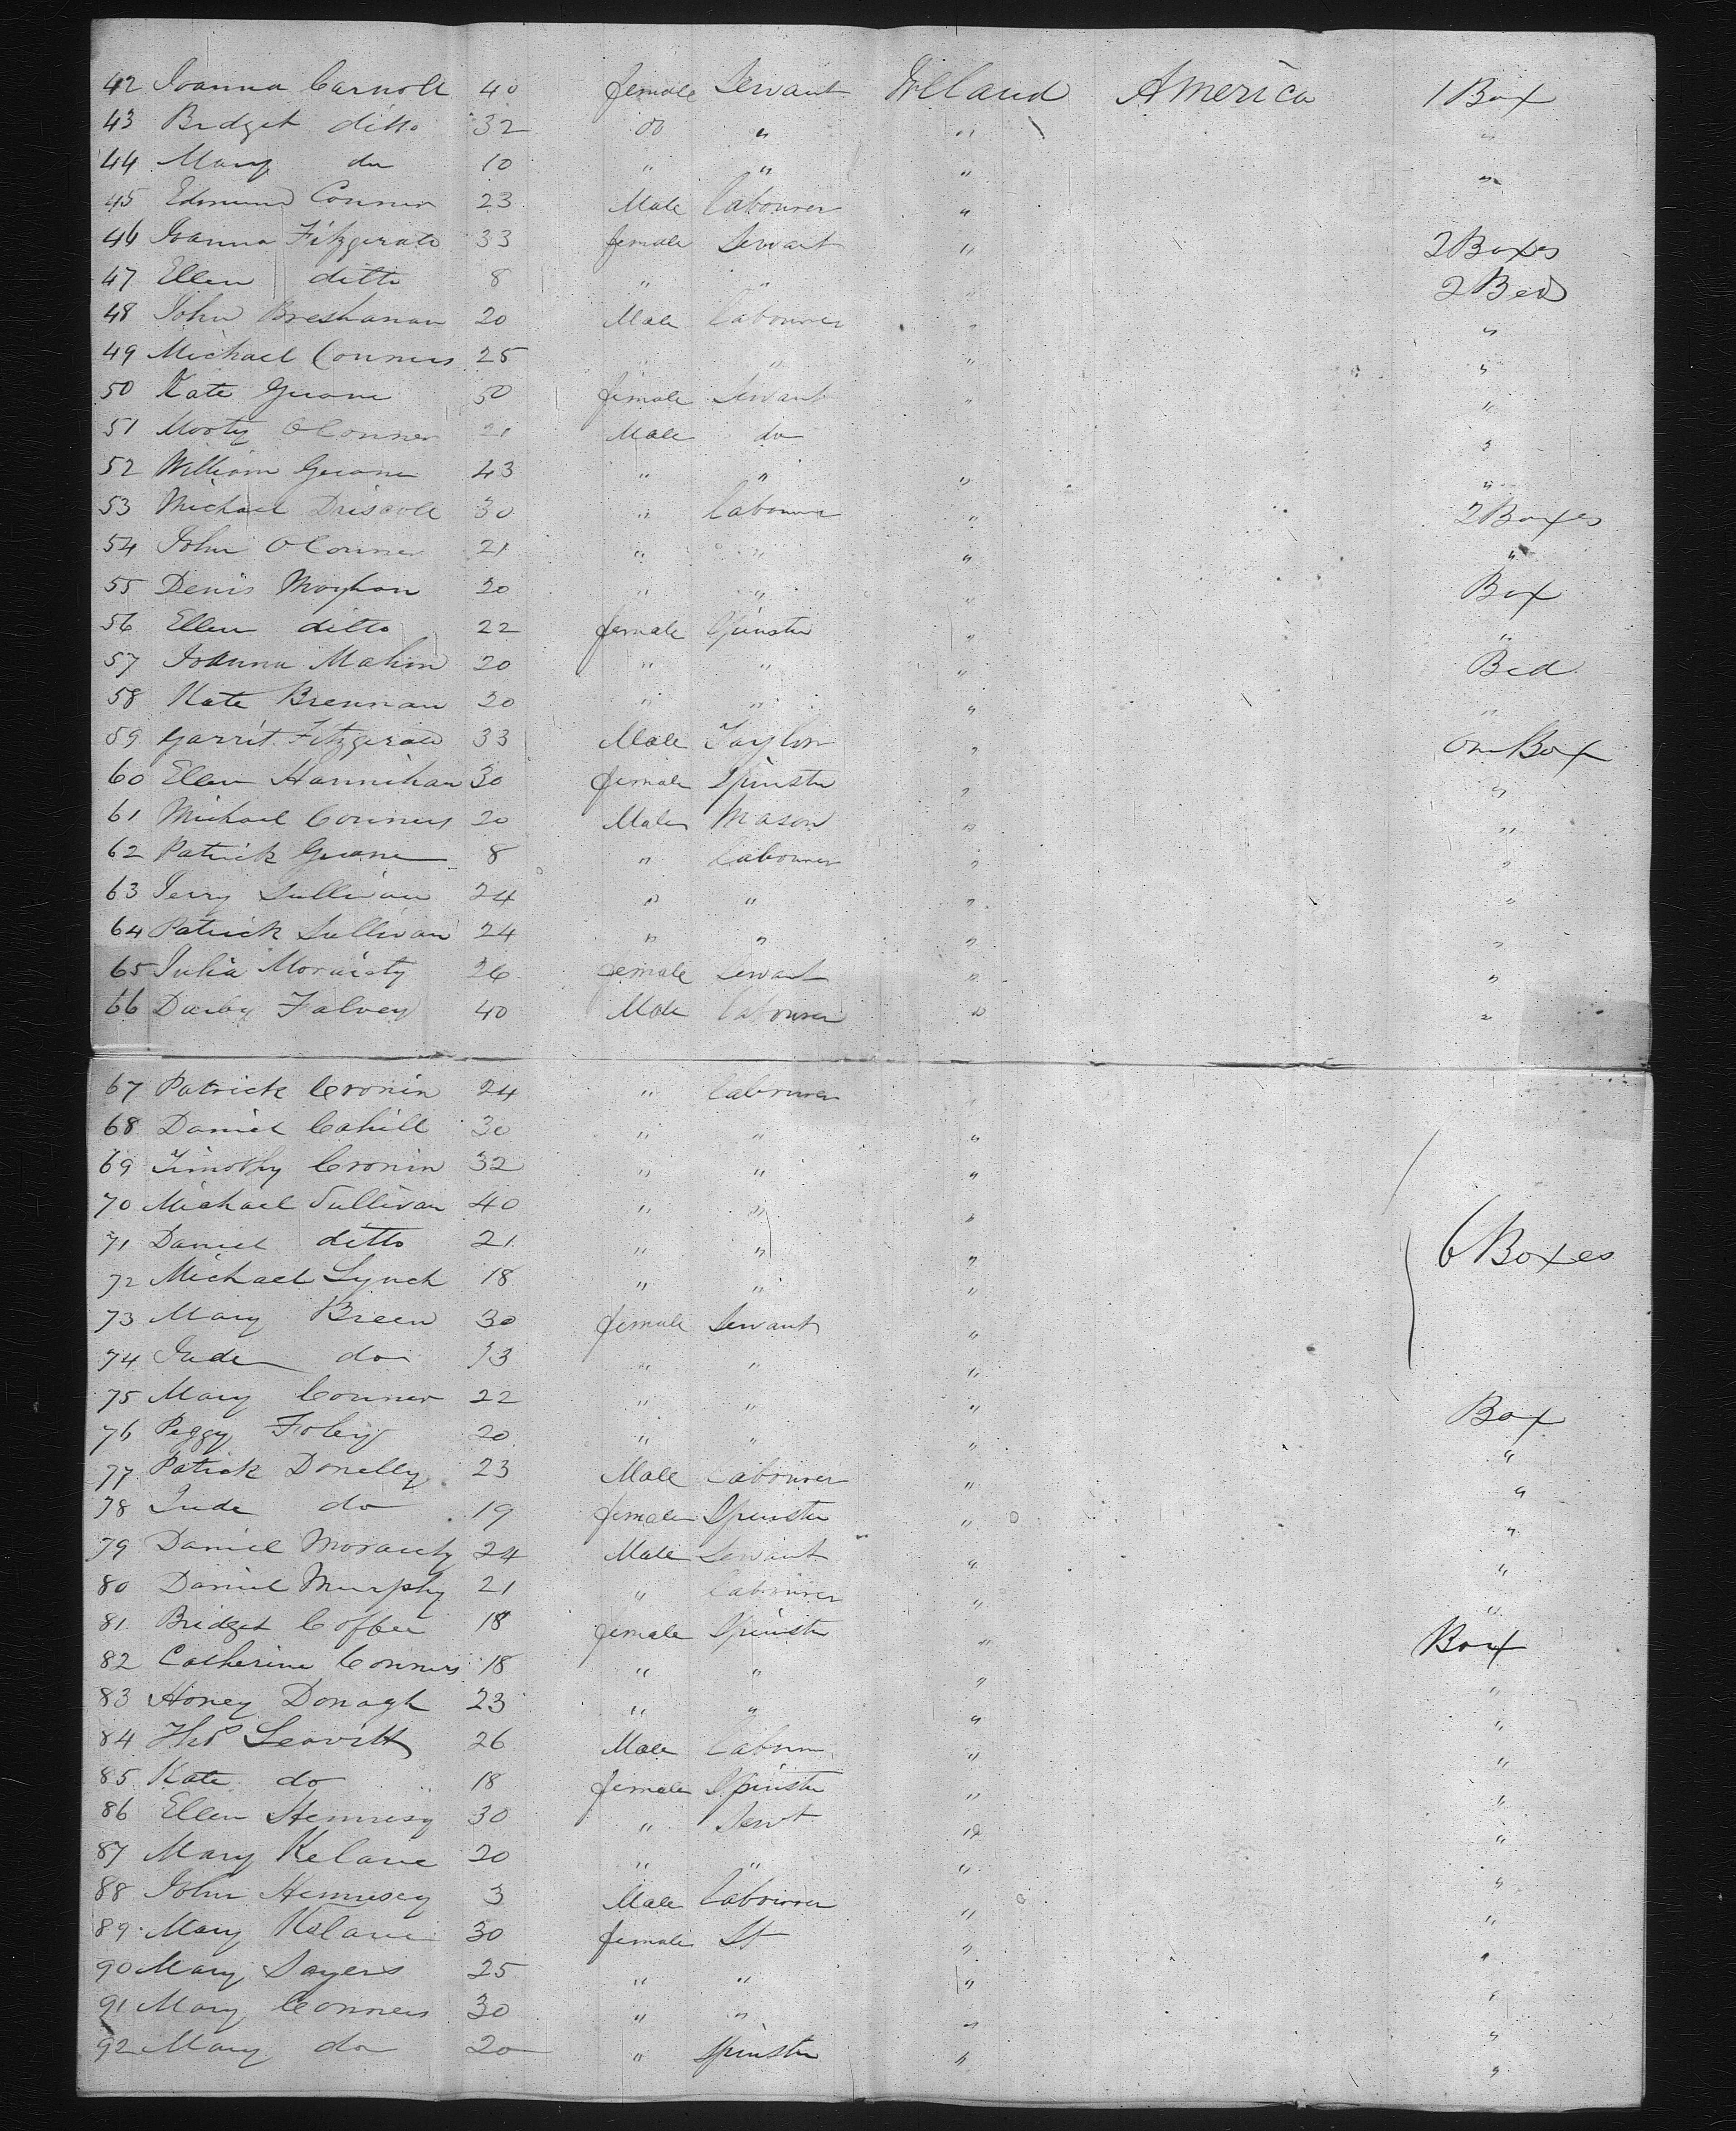 42 Joanna Carroll 40 female Servant Ireland America 1 Box
43 Bridget ditto 32 do " " "
44 Mary do 10 " " " "
45 Edmund Conner 23 Male Labourer "
46 Joanna Fitzgerald 33 female Servant " 2 Boxes
47 Ellen ditto 8 " " " 2 Bed
48 John Breshanan 20 Male Labourer " "
49 Michael Conners 25 " " " "
50 Kate 50 female Servant " "
51 Morty O Conner 21 Male do "
52 William 43 " " " "
53 Michael Driscoll 30 " Labourer " 2 Boxes
54 John O Conner 21 " " " "
55 Denis Moyhan 20 " " " Box
56 Ellen ditto 22 female Spinster " "
57 Joanna Mahon 20 " " " Bed
58 Kate Brennan 20 " " " "
59 Garrit Fitzgerald 33 Male Taylor " on Box
60 Ellen Hannihan 30 female Spinster " "
61 Michael Conners 20 Male Mason " "
62 Patrick 8 " Labourer " "
63 Jerry Sullivan 24 " " " "
64 Patrick Sullivan 24 " " " "
65 Julia Moraisty 26 female Servant " "
66 Darby Falvey 40 Male Labourer " "
67 Patrick Cronin 24 " Labourer "
68 Daniel Cahill 30 " " "
69 Timothy Cronin 32 " " "
70 Michael Sullivan 40 " " "
71 Daniel ditto 21 " " " 6 Boxes
72 Michael Lynch 18 " " "
73 Mary Breen 30 female Servant "
74 do 13 " " "
75 Mary Conner 22 " " " Box
76 Peggy Foley 20 " " " "
77 Patrick Donelly 23 Male Labourer " "
78 Jude do 19 female Spinster " "
79 Daniel Moraisty 24 Male Servant " "
80 Daniel Murphy 21 " Labourer " "
81 Bridget Coffee 18 female Spinster " Box
82 Catherine Conners 18 " " " "
83 Honey Donagh 23 " " " "
84 Thos Leavitt 26 Male Labourr " "
85 Kate do 18 female Spinster " "
86 Ellen Hennesy 30 " Servt " "
87 Mary Kelane 20 " " " "
88 John Hennesey 3 Male Labourer " "
89 Mary Kelane 30 female St " "
90 Mary Sayers 25 " " " "
91 Mary Conners 30 " " " "
92 Mary do 20 " Spinster " "